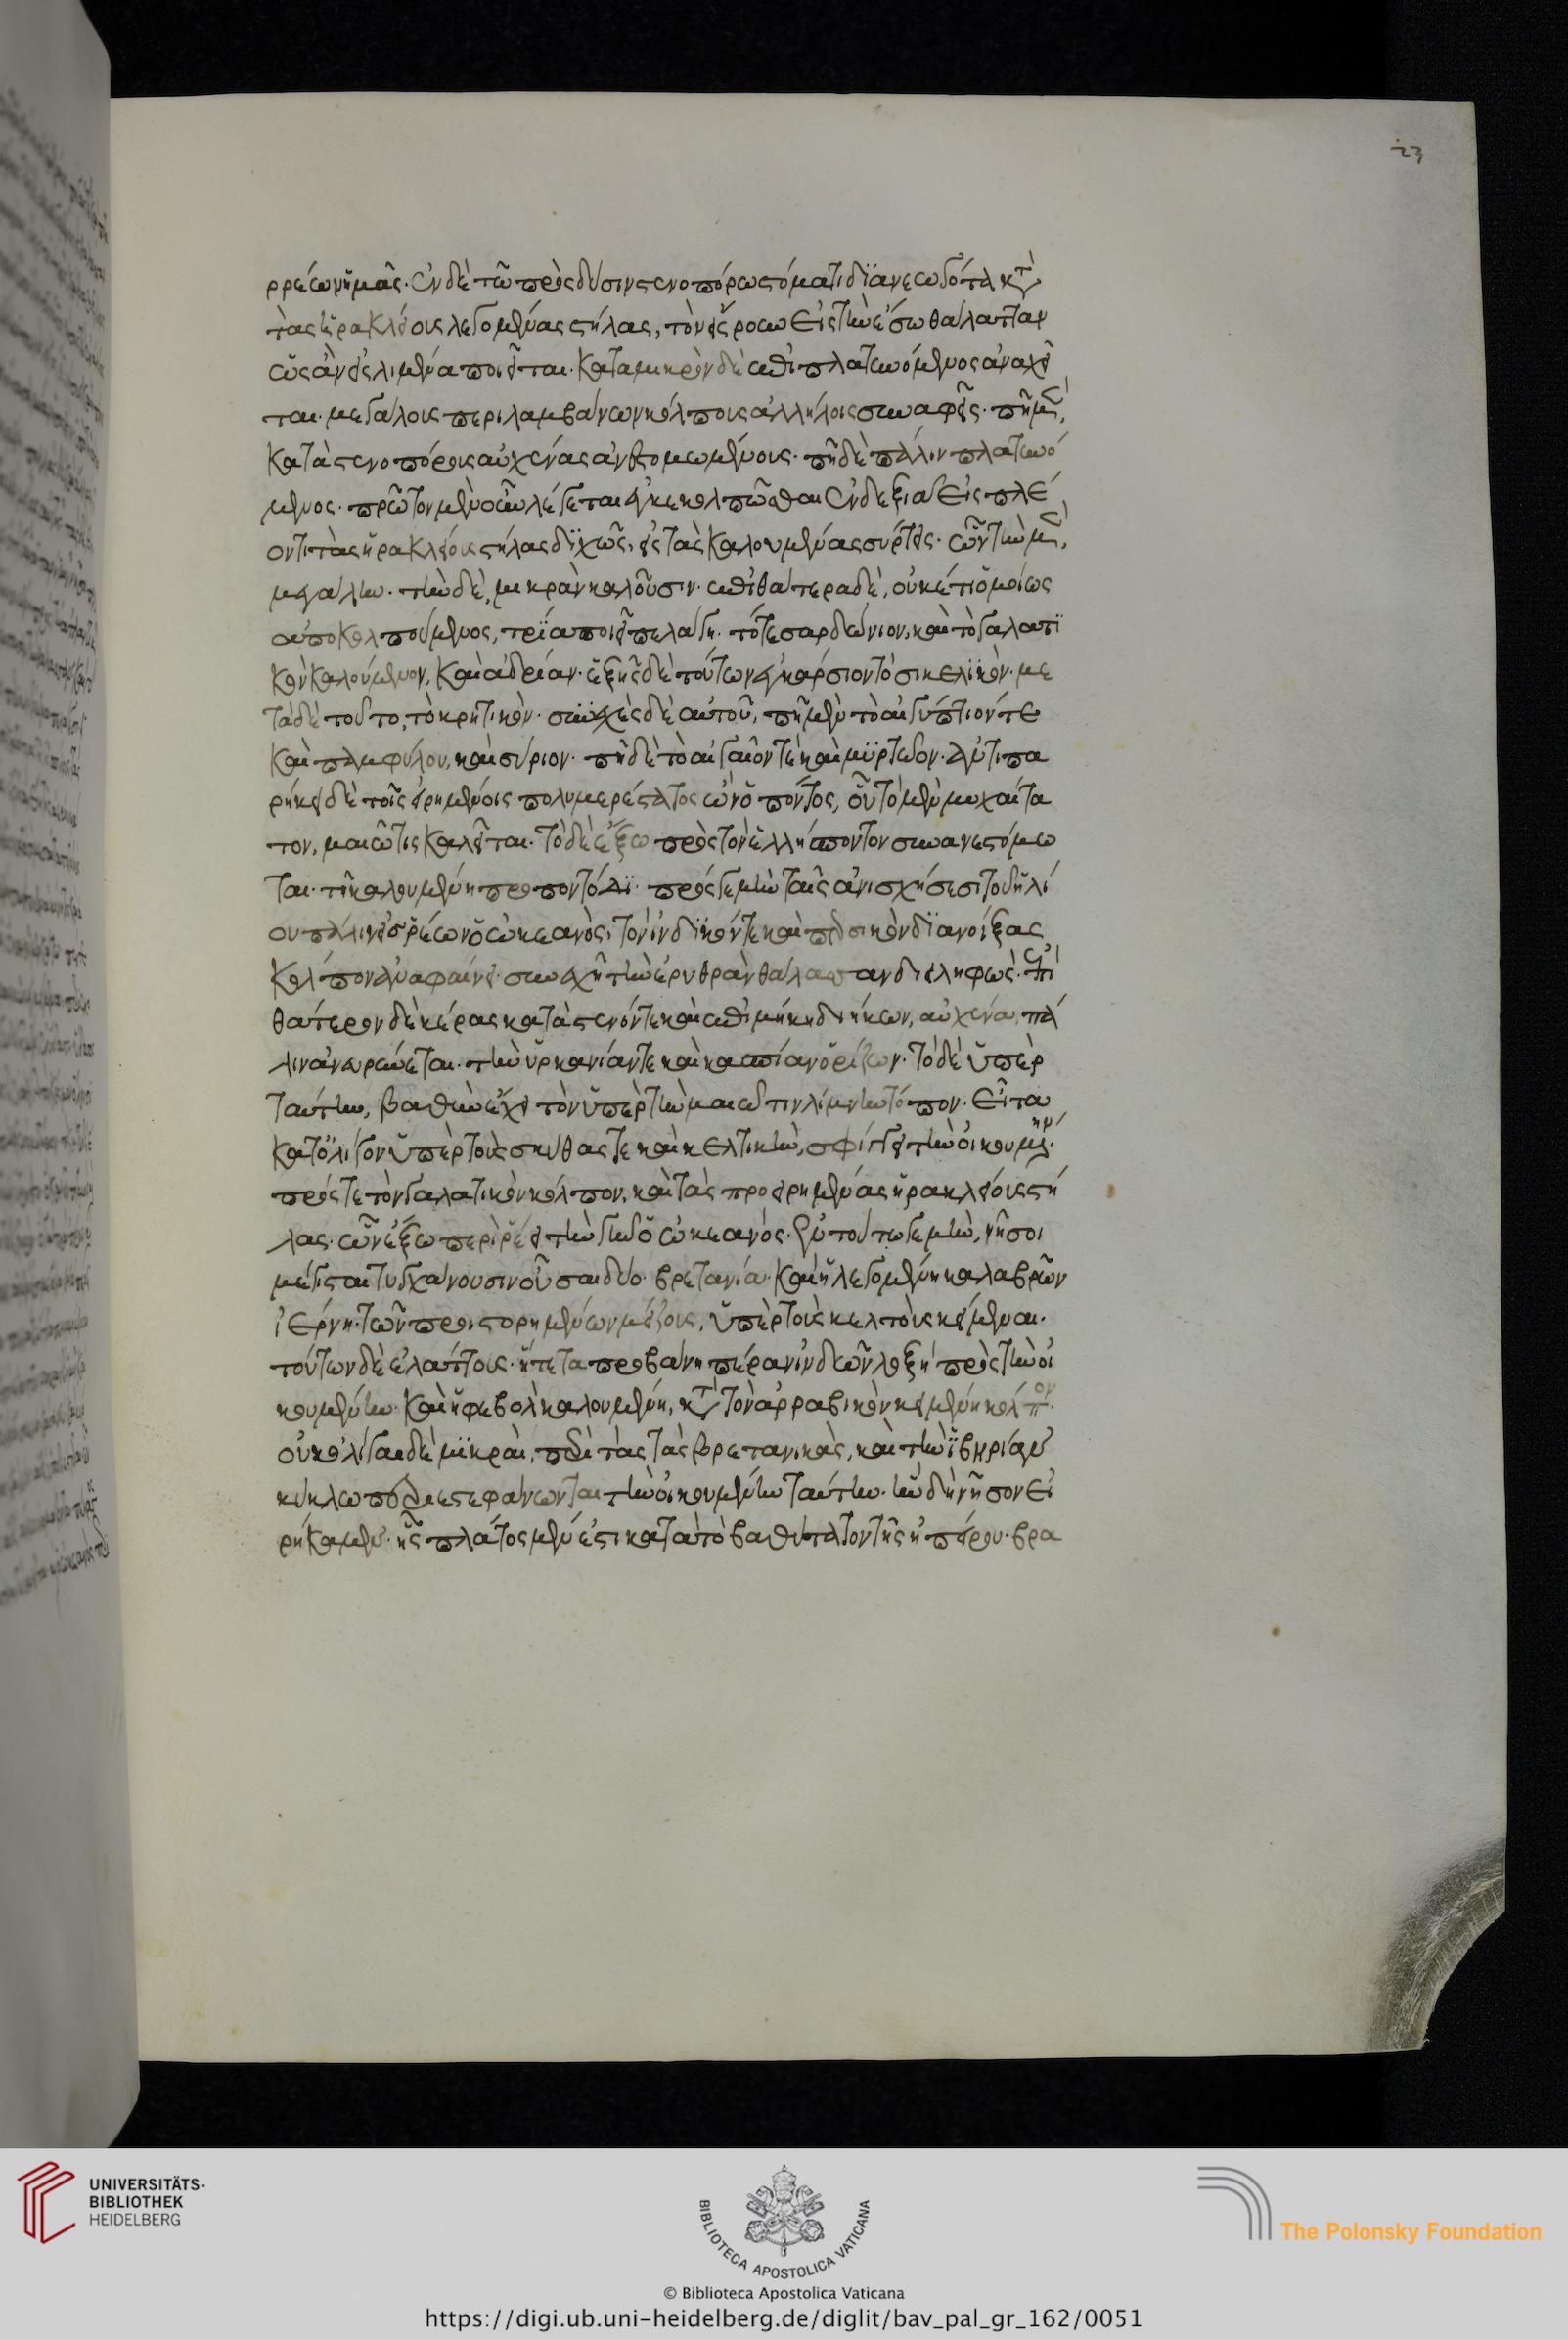 ρρέων ἡμᾶς. ἐν δὲ τῶ πρὸς δύσιν στενοπόρω στόματι διανεωγότα κατὰ
τὰς ἡρακλείους λεγομένας στήλας, τὸν εἴσρουν εἰς τὴν ἔσω θάλατταν
ὡς ἂν εἰς λιμένα ποιεῖται. κατὰ μικρὸν δὲ ἐπιπλατυνόμενος ἀναχεῖ
ται. μεγάλοις περιλαμβάνων κόλποις ἀλλήλοις συναφεῖς. πῆ μὲν,
κατὰ στενοπόροις αὐχένας ἀνεστομωμένοις. πῆ δὲ πάλιν πλατυνό
μενος. πρῶτον μὲν οὖν λέγεται ἐγκεκολπῶσθαι ἐν δεξιᾶ εἰς πλέ
οντι τὰς ἡρακλείους στήλας διχῶς, εἰς τὰς καλουμένας σύρτεις. ὧν τὴν μὲν,
μεγάλην. τὴν δὲ, μικρὰν καλοῦσιν. ἐπὶ θάτερα δὲ, οὐκέτι ὁμοίως
ἀποκολπούμενος, τρία ποιεῖ πελάγη. τό τε σαρδώνιον, καὶ τὸ γαλατι
κὸν καλούμενον, καὶ ἀδρίαν. ἑξῆς δὲ τούτων ἐγκάρσιον τὸ σικελικὸν. με
τὰ δὲ τοῦτο, τὸ κρητικὸν. συνεχὲς δὲ αὐτοῦ, πῆ μὲν τὸ αἰγύπτιόν τε
καὶ παμφύλου, καὶ σύριον. πῆ δὲ τὸ αἰγαῖόν τε καὶ μύρτωον. ἀντιπα
ρήκει δὲ τοῖς εἰρημένοις πολυμερέστατος ὢν ὁ πόντος, οὗ τὸ μὲν μυχαίτα
τον, μαιῶτις καλεῖται. τὸ δὲ ἔξω πρὸς τὸν ἑλλήσποντον συνανεστόμω
ται. τῆ καλουμένη προποντίδι. πρός γε μὴν ταῖς ἀνισχήσεσι τοῦ ἡλί
ου πάλιν εἰσρέων ὁ ὠκεανὸς, τὸν ἰνδικόν τε καὶ περσικὸν διανοίξας
κόλπον ἀναφαίνει. συνεχῆ τὴν ἐρυθρὰν θάλασσαν διειληφὼς. ἐπὶ
θάτερον δὲ κέρας κατὰ στενόν τε καὶ ἐπιμήκη διήκων, αὐχένα, πά
λιν ἀνευρύνεται. τὴν ὑρκανίαν τε καὶ κασπίαν ὁρίζων. τὸ δὲ ὑπὲρ
ταύτην, βαθὺν ἔχει τὸν ὑπὲρ τὴν μαιῶτιν λίμνην τόπον. εἶτα
κατ' ὀλίγον ὑπὲρ τοὺς σκύθας τε καὶ κελτικὴν, σφίγγει τὴν οἰκουμένην.
πρός τε τὸν γαλατικὸν κόλπον, καὶ τὰς προειρημένας ἡρακλείους στή
λας. ὧν ἔξω περιρέει τὴν γῆν ὁ ὠκεανός. ἐν τούτω γε μὴν, νῆσοι
μέγισται τυγχάνουσιν οὖσαι δύο. βρετανία. καὶ ἡ λεγομένη καλαβρῶν
ἰέρνη. τῶν προιστορημένων μείζους, ὑπὲρ τοὺς κελτοὺς κείμεναι.
τούτων δὲ ἐλάττους. ἥ τε ταπροβάνη πέραν ἰνδῶν λοξὴ πρὸς τὴν οἰ
κουμένην. καὶ ἡ φεβολ καλουμένη, κατὰ τὸν ἀρραβικὸν κειμένη κόλπον.
οὐκ ὀλίγαι δὲ μικραὶ, περὶ τὰς τὰς βρετανικὰς, καὶ τὴν ἰβηρίαν
κύκλω περιεστεφάνωνται τὴν οἰκουμένην ταύτην. ἣν δὴ νῆσον εἰ
ρήκαμεν. ἧς πλάτος μέν ἐστι κατὰ τὸ βαθύτατον τῆς ἠπείρου. βρα
23
UNIVERSITÄTS-
BIBLIOTHEK
HEIDELBERG
BIBLIOTECA APOSTOLICA VATICANA
The Polonsky Foundation
© Biblioteca Apostolica Vaticana
https://digi.ub.uni-heidelberg.de/diglit/bav_pal_gr_162/0051